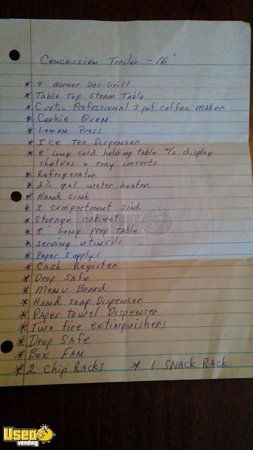 Concession Trailer - 16'
* 4 Burner Gas Grill
* Table Top Steam Table
* Curtis Professional 2 pot coffee maker
* Cookie Oven
* Lemon Press
* Ice Tea Dispenser
* 8' Long cold holding table w/2 display
shelves + tray inserts
* Refrigerator
* 2½ gal water heater
* Hand sink
* 3 compartment sink
* Storage cabinet
* 8' Long prep table
* serving utinsils
* Paper Supplys
* Cash Register
* Drop Safe
* Menu Board
* Hand soap Dispenser
* Paper towel Dispenser
* Two fire extinguishers
* Drop Safe
* Box Fan
* 2 Chip Racks * 1 SNACK RACK
Used
vending